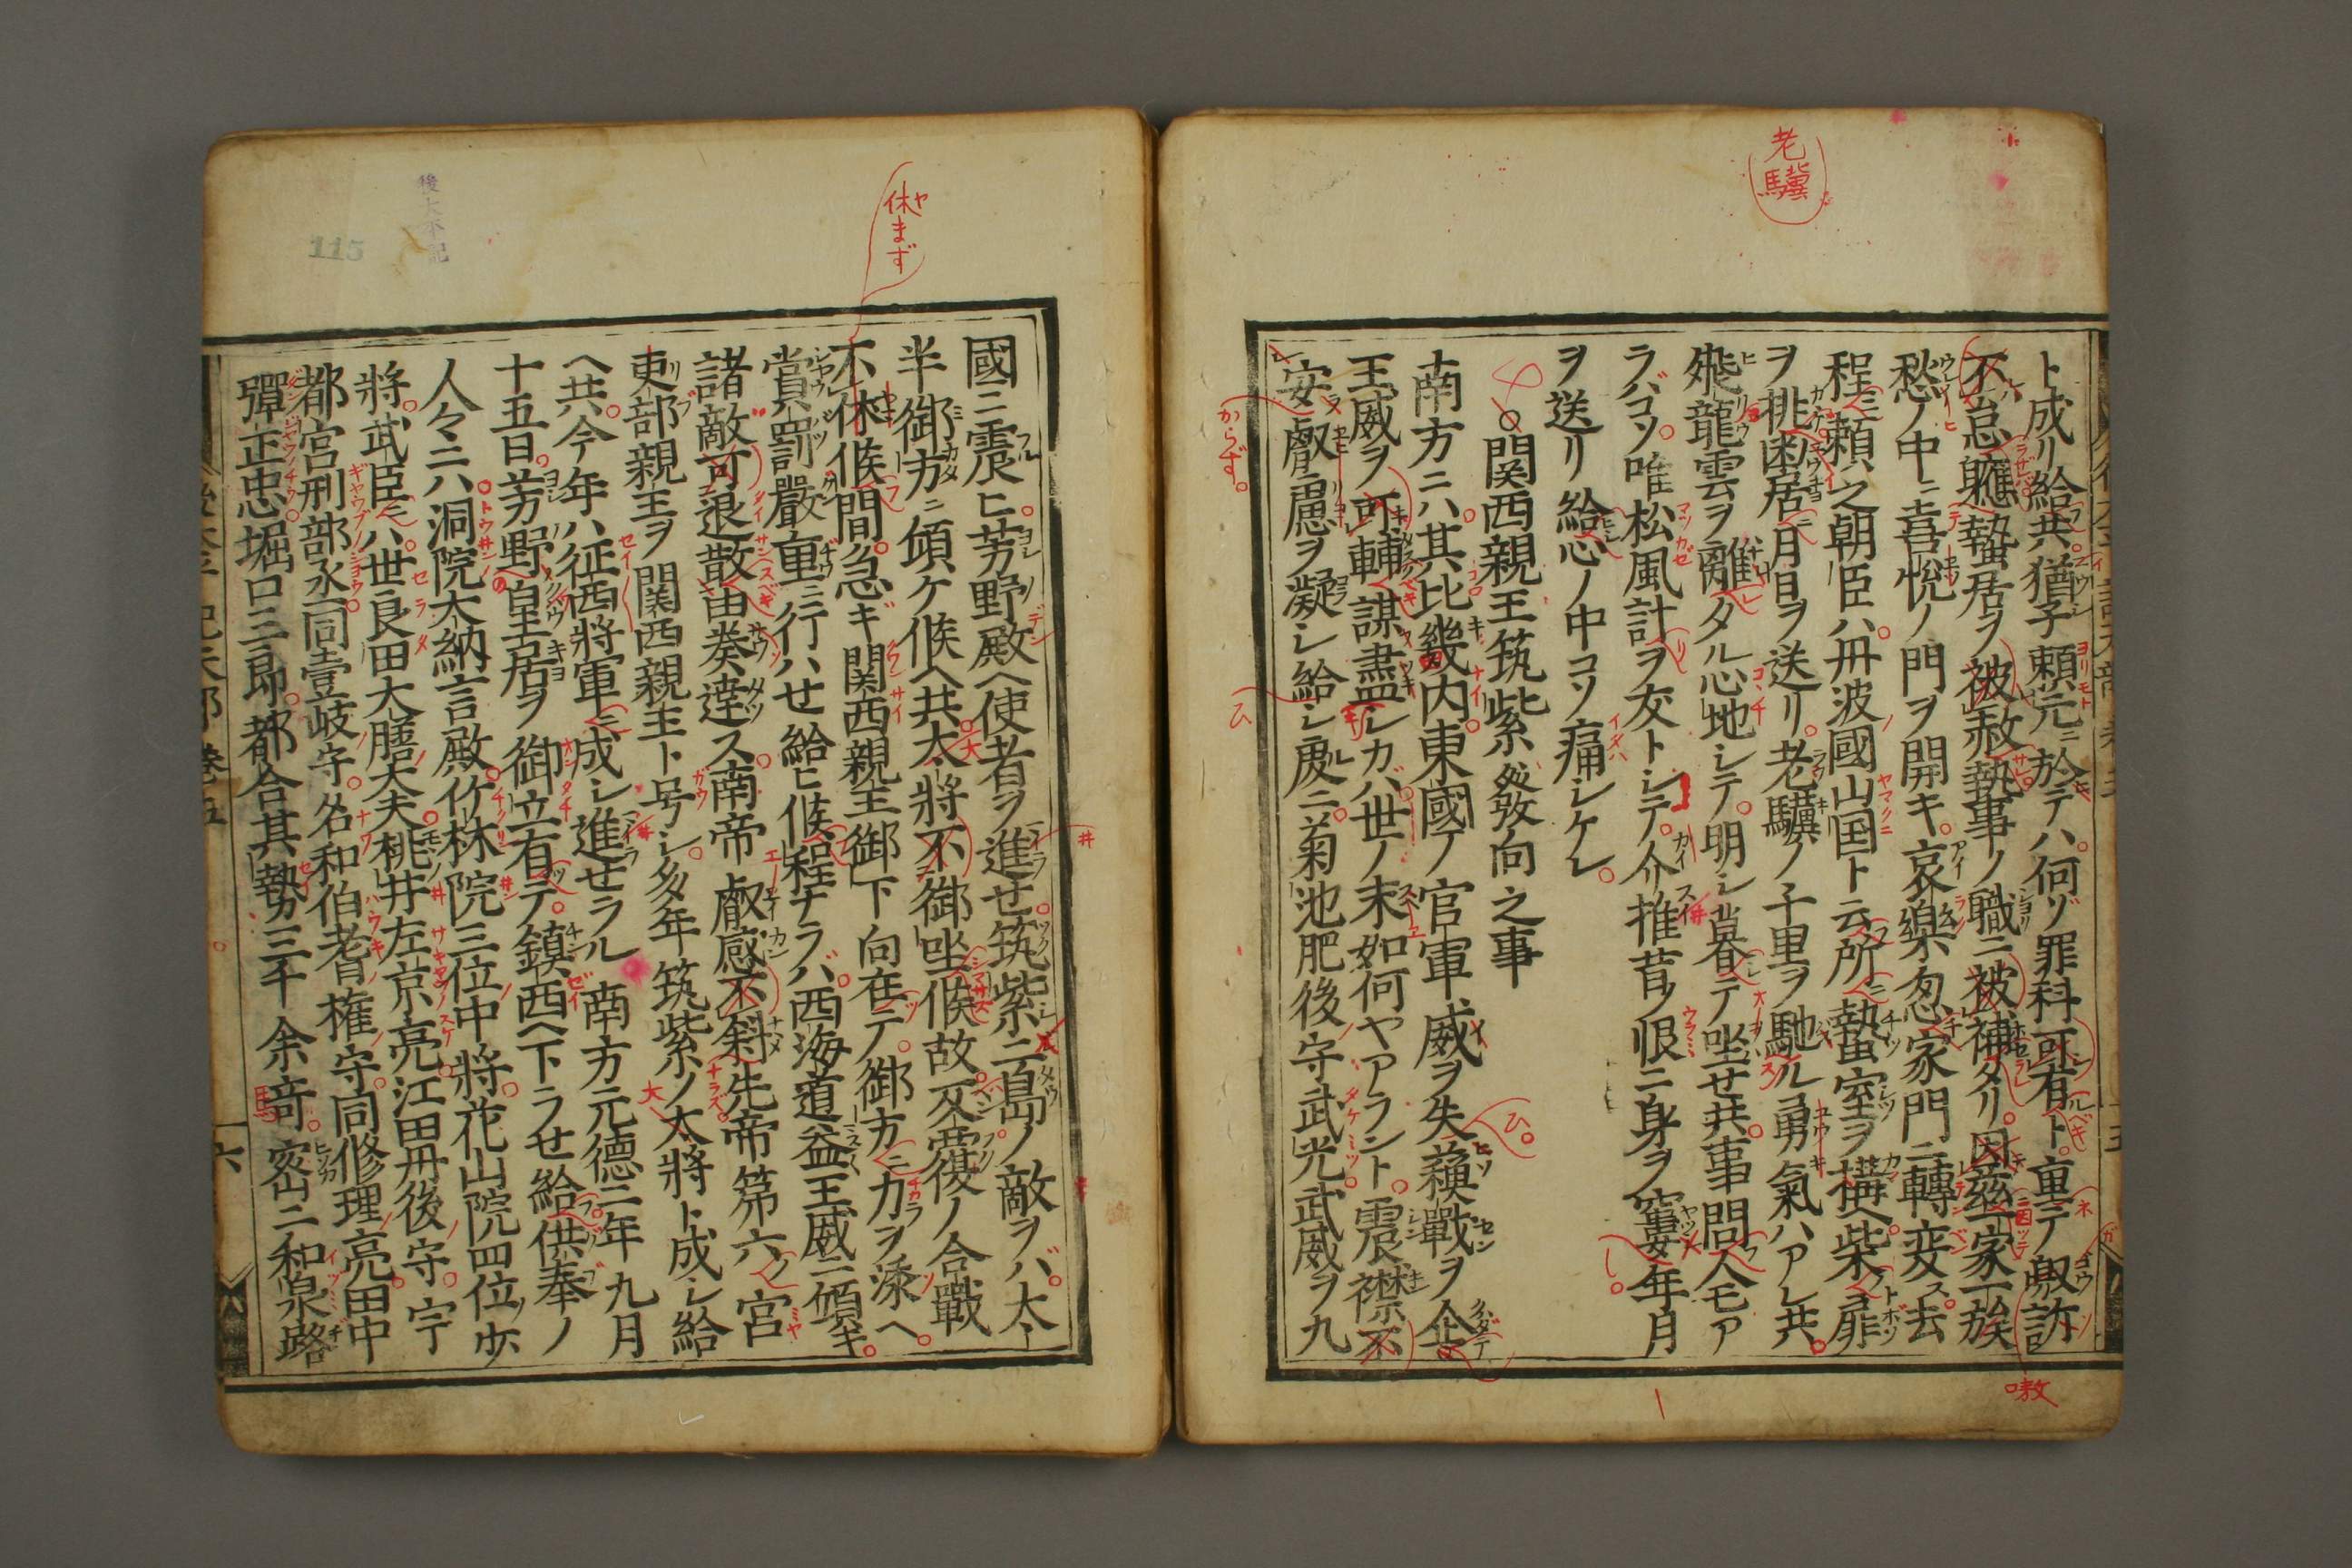 老驥
ト成リ給共猶子頼元ニ於テハ何ゾ罪科可有ト重テ嗷訴
不怠軈蟄居ヲ被赦執事ノ職ニ被補タリ因茲一家一族
愁ノ中ニ喜悦ノ門ヲ開キ哀樂忽家門ニ轉変ス去
程ニ頼之朝臣ハ丹波國山国ト云所ニ蟄室ヲ構柴ノ扉
ヲ排困居ニ月日ヲ送リ老驥ノ千里ヲ馳ル勇氣ハアレ共
飛龍雲ヲ離タル心地シテ明シ暮テ坐セ共事問人モア
ラバコソ唯松風計ヲ友トシテ介推昔ノ恨ニ身ヲ窶年月
ヲ送リ給心ノ中コソ痛シケレ
○関西親王筑紫發向之事
南方ニハ其比畿内東國ノ官軍威ヲ失蘋戰ヲ企
王威ヲ可輔謀盡シカバ世ノ末如何ヤアラント震襟不
安叡慮ヲ凝シ給シ処ニ菊池肥後守武光武威ヲ九
からず。
嗷
休まず
後太平記
115
國ニ震ヒ芳野殿ヘ使者ヲ進セ筑紫二島ノ敵ヲバ太
半御方ニ傾ケ候ヘ共太將不御坐候故反覆ノ合戰
不休候間急ギ関西親王御下向在テ御方ニ力ヲ添ヘ
賞罰嚴重ニ行ハセ給ヒ候程ナラバ西海道益王威ニ傾キ
諸敵可退散由奏達ス南帝叡感不斜先帝第六ノ宮
吏部親王ヲ関西親王ト号シ多年筑紫ノ大將ト成シ給
ヘ共今年ハ征西將軍ニ成シ進セラル南方元德二年九月
十五日芳野ノ皇居ヲ御立有テ鎮西ヘ下ラセ給供奉ノ
人々ニハ洞院大納言殿竹林院三位中將花山院四位少
將武臣ニハ世良田大膳大夫桃井左京亮江田丹後守宇
都宮刑部丞同壹岐守名和伯耆権守同修理亮田中
彈正忠堀口三郎都合其勢三千余竒密ニ和泉路
六